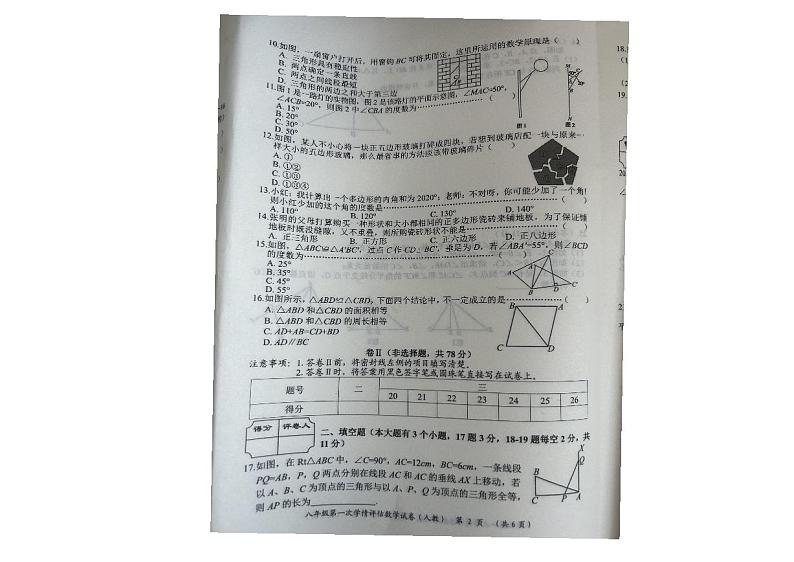 10.如图,一扇窗户打开后,用窗钩BC可将其固定,这里所运用的数学原理是( )
A. 三角形具有稳定性
B. 两点确定一条直线
C. 两点之间线段最短
D. 三角形的两边之和大于第三边
11.图1是一路灯的实物图,图2是该路灯的平面示意图,∠MAC=50°,
∠ACB=20°,则图2中∠CBA的度数为………………( )
A. 15°
B. 20°
C. 30°
D. 50°
图1 图2
12.如图,某人不小心将一块正五边形玻璃打碎成四块,若想到玻璃店配一块与原来一
样大小的五边形玻璃,那么最省事的方法应该带玻璃碎片( )
A. ①
B. ①②
C. ①③
D. ①③④
13.小红:我计算出一个多边形的内角和为2020°;老师:不对呀,你可能少加了一个角!
则小红少加的这个角的度数是………………( )
A. 110° B. 120° C. 130° D. 140°
14.张明的父母打算购买一种形状和大小都相同的正多边形瓷砖来铺地板,为了保证铺
地板时既没缝隙,又不重叠,则所购瓷砖形状不能是………………( )
A. 正三角形 B. 正方形 C. 正六边形 D. 正八边形
15.如图,△ABC≌△A'B'C',过点C作CD⊥BC',垂足为D,若∠ABA'=55°,则∠BCD
的度数为………………( )
A. 25°
B. 35°
C. 45°
D. 55°
16.如图所示,△ABD≌△CBD,下面四个结论中,不一定成立的是………………( )
A. △ABD和△CBD的面积相等
B. △ABD和△CBD的周长相等
C. AD+AB=CD+BD
D. AD∥BC
A B C D
卷Ⅱ(非选择题,共78分)
注意事项:1. 答卷Ⅱ前,将密封线左侧的项目填写清楚。
2. 答卷Ⅱ时,将答案用黑色签字笔或圆珠笔直接写在试卷上。
题号 二 三
20 21 22 23 24 25 26
得分
得分 评卷人
二、填空题(本大题有3个小题,17题3分,18-19题每空2分,共
11分)
17.如图,在Rt△ABC中,∠C=90°,AC=12cm,BC=6cm,一条线段
PQ=AB,P,Q两点分别在线段AC和AC的垂线AX上移动,若
以A、B、C为顶点的三角形与以A、P、Q为顶点的三角形全等,
则AP的长为____________.
X Q B C P A
八年级第一次学情评估数学试卷(人教) 第2页 (共6页)